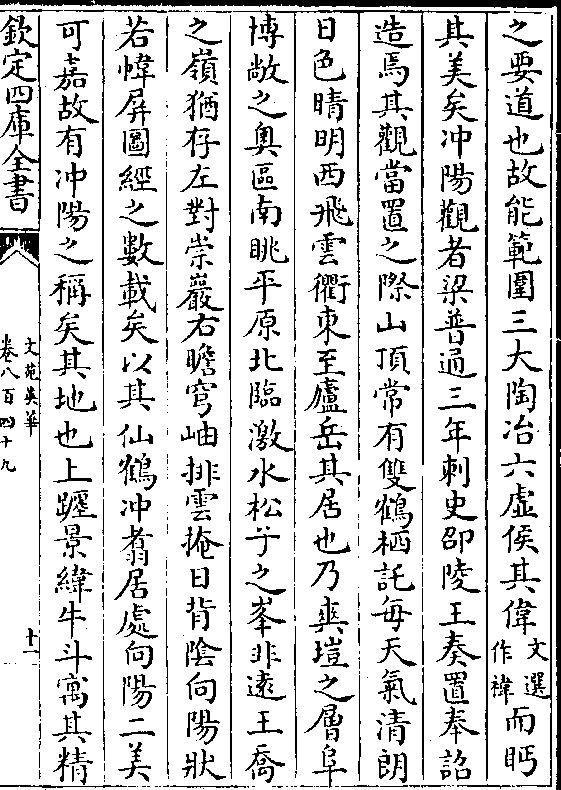 之要道也故能範圍三大陶冶六虛侯其偉文選作褘而眄
其美矣冲陽觀者梁普通三年刺史邵陵王奏置奉詔
造焉其觀當置之際山頂常有雙鶴栖託每天氣清朗
日色晴明西飛雲衢東至廬岳其居也乃爽塏之層阜
博敞之奥區南眺平原北臨激水松子之峯非遠王喬
之嶺猶存左對崇巖右瞻穹岫排雲掩日背陰向陽狀
若幃屏圖經之數載矣以其仙鶴冲翥居處向陽二美
可嘉故有冲陽之稱矣其地也上躔景緯牛斗寓其精
欽定四庫全書
文苑英華
卷八百四十九
十一